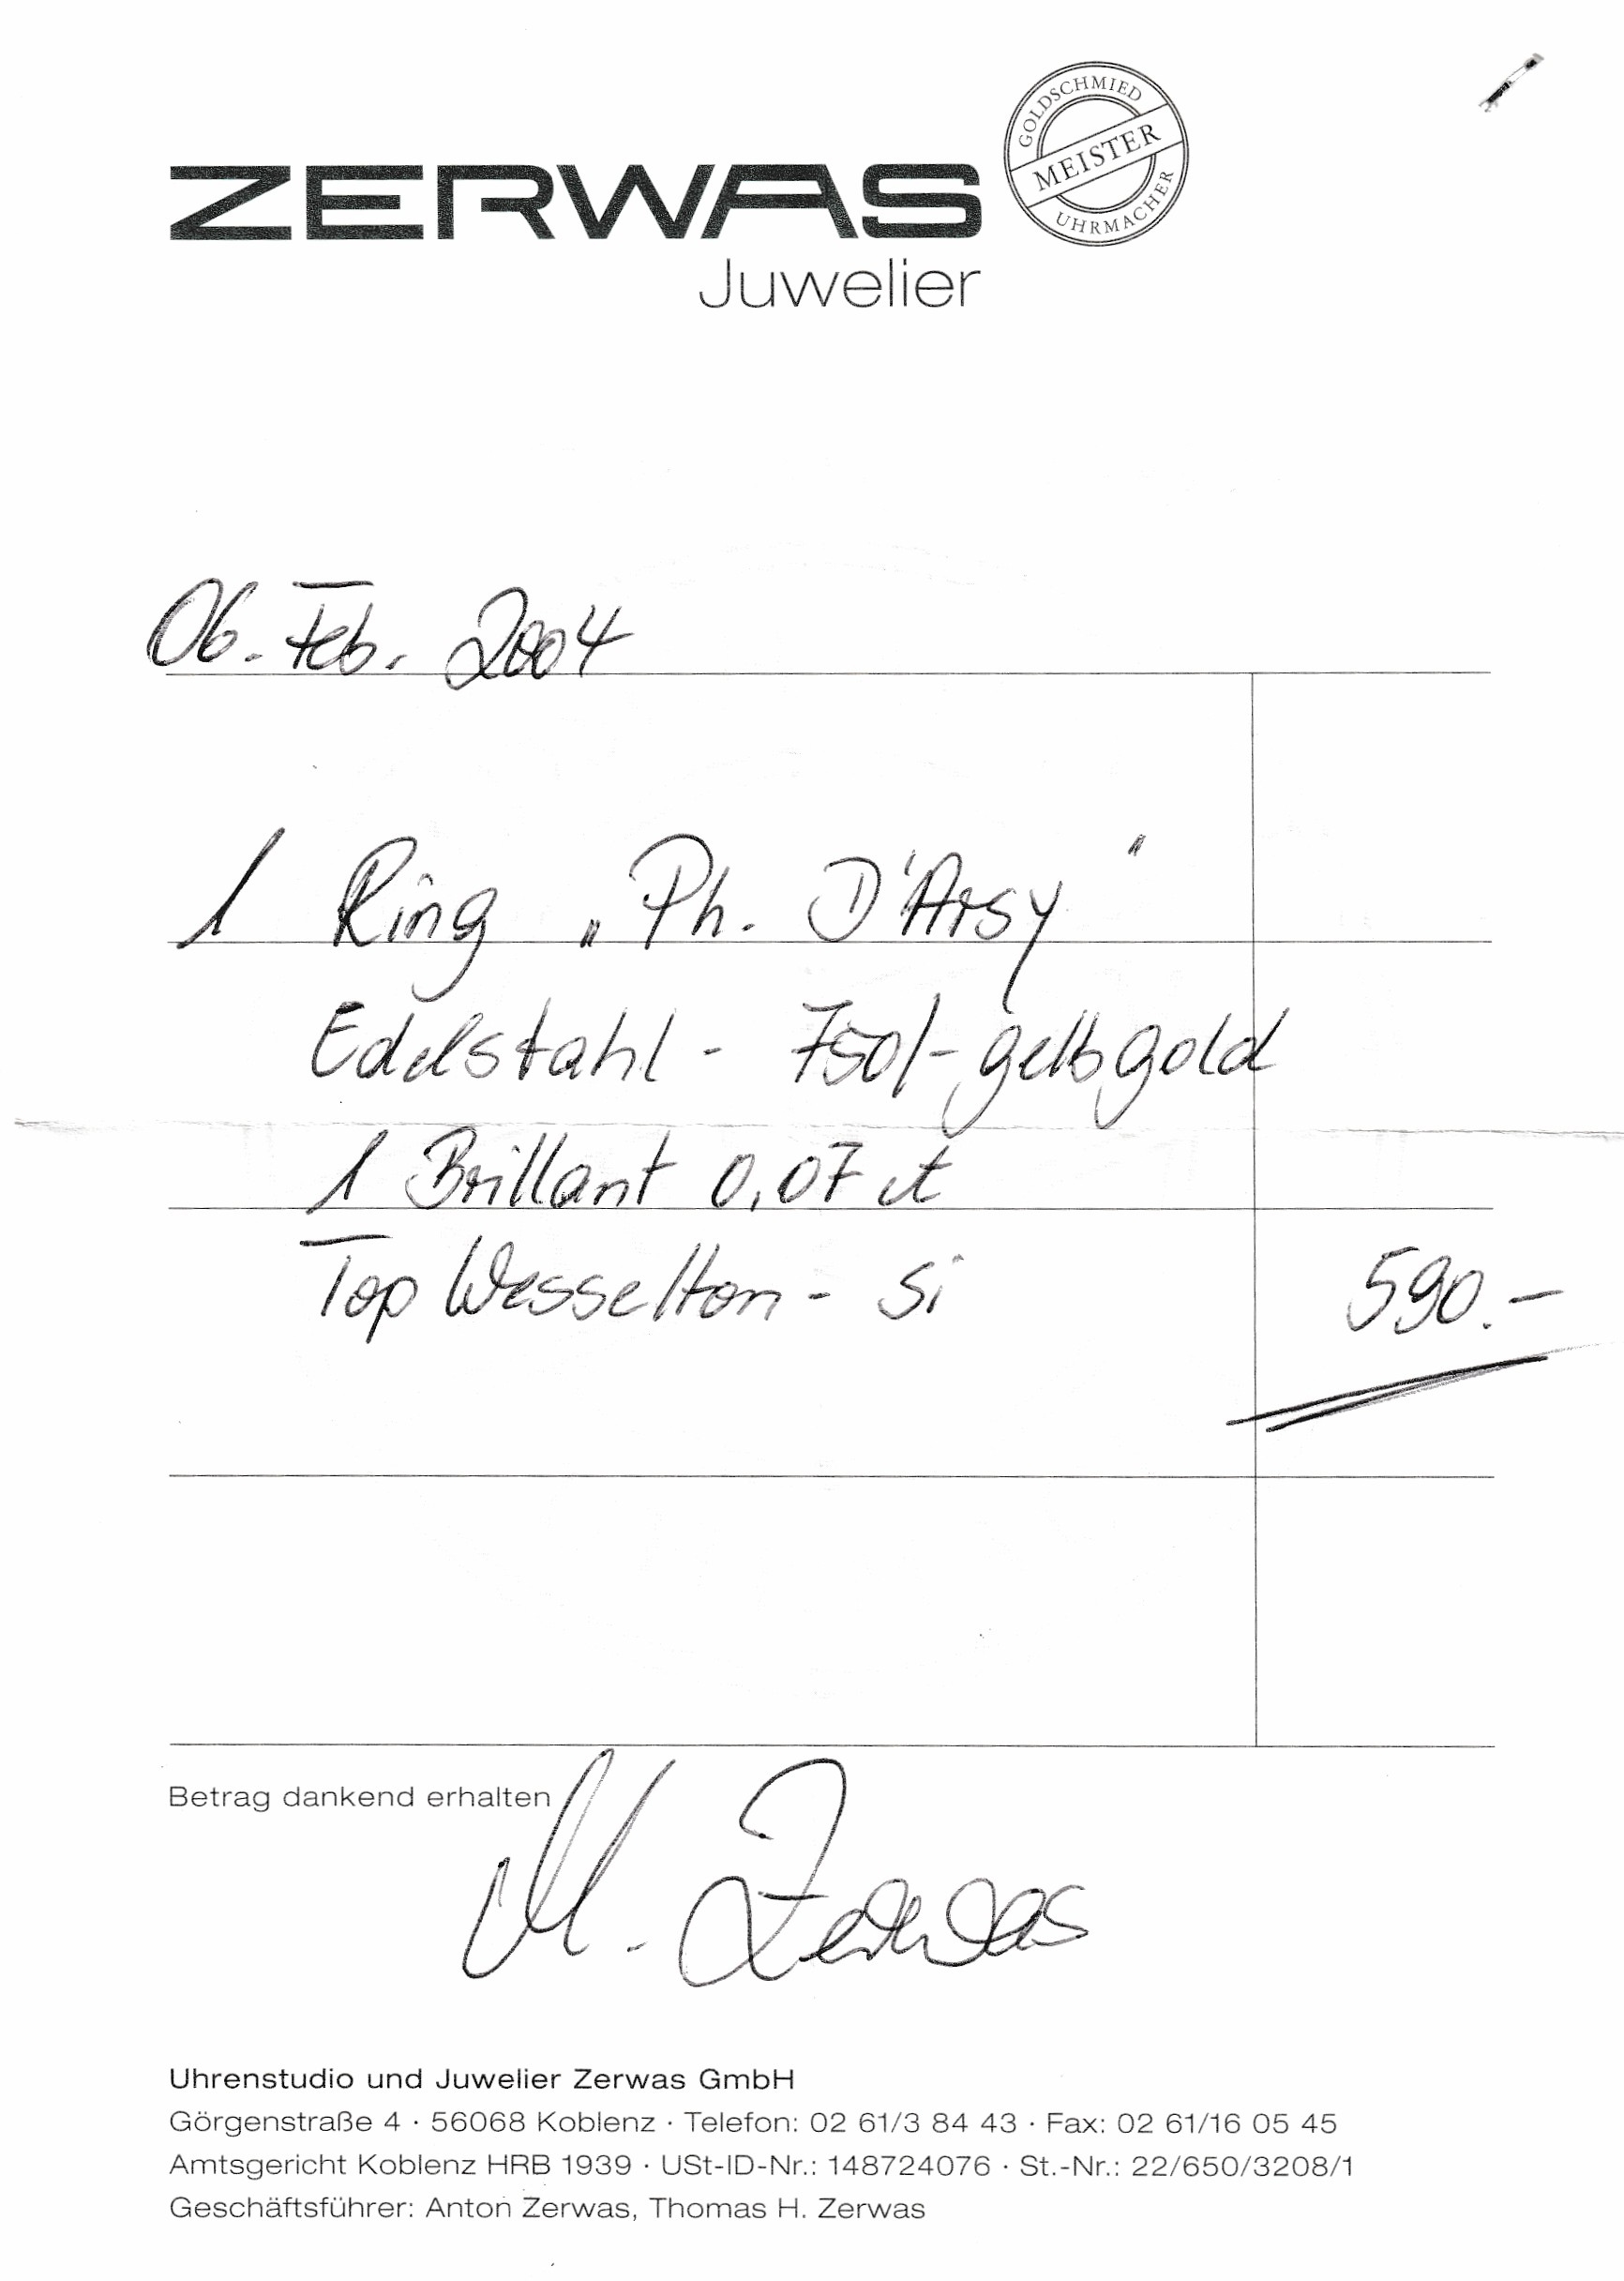 ZERWAS
Juwelier
GOLDSCHMIED
MEISTER
UHRMACHER
06. Feb. 2004
1 Ring „Ph. D'Arsy"
Edelstahl - 750/- gelbgold
1 Brillant 0,07 ct
Top Wesselton - si 590.-
Betrag dankend erhalten
M. Zerwas
Uhrenstudio und Juwelier Zerwas GmbH
Görgenstraße 4 · 56068 Koblenz · Telefon: 02 61/3 84 43 · Fax: 02 61/16 05 45
Amtsgericht Koblenz HRB 1939 · USt-ID-Nr.: 148724076 · St.-Nr.: 22/650/3208/1
Geschäftsführer: Anton Zerwas, Thomas H. Zerwas